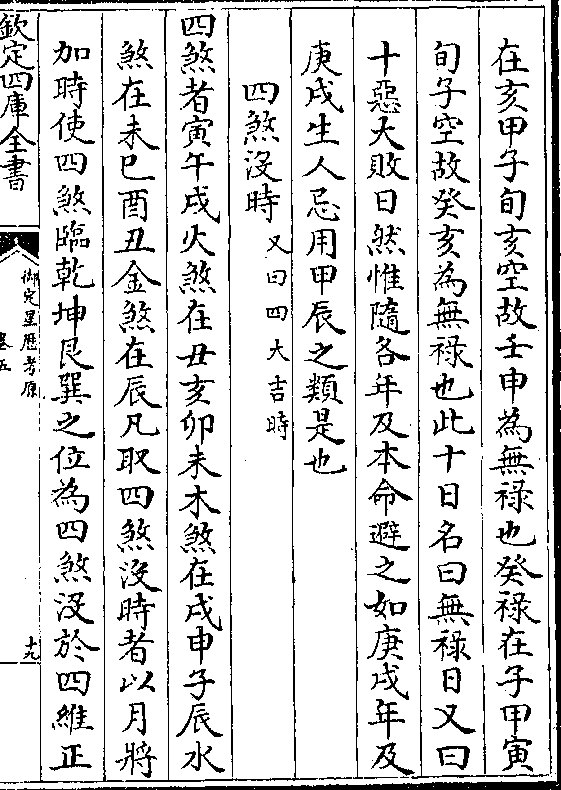 在亥甲子旬亥空故壬申為無祿也癸祿在子甲寅
旬子空故癸亥為無祿也此十日名曰無祿日又曰
十惡大敗日然惟隨各年及本命避之如庚戌年及
庚戌生人忌用甲辰之類是也
四煞沒時又曰四大吉時
四煞者寅午戌火煞在丑亥卯未木煞在戌申子辰水
煞在未巳酉丑金煞在辰凡取四煞沒時者以月將
加時使四煞臨乾坤艮巽之位為四煞沒於四維正
欽定四庫全書
御定星歷考原
卷五
十九